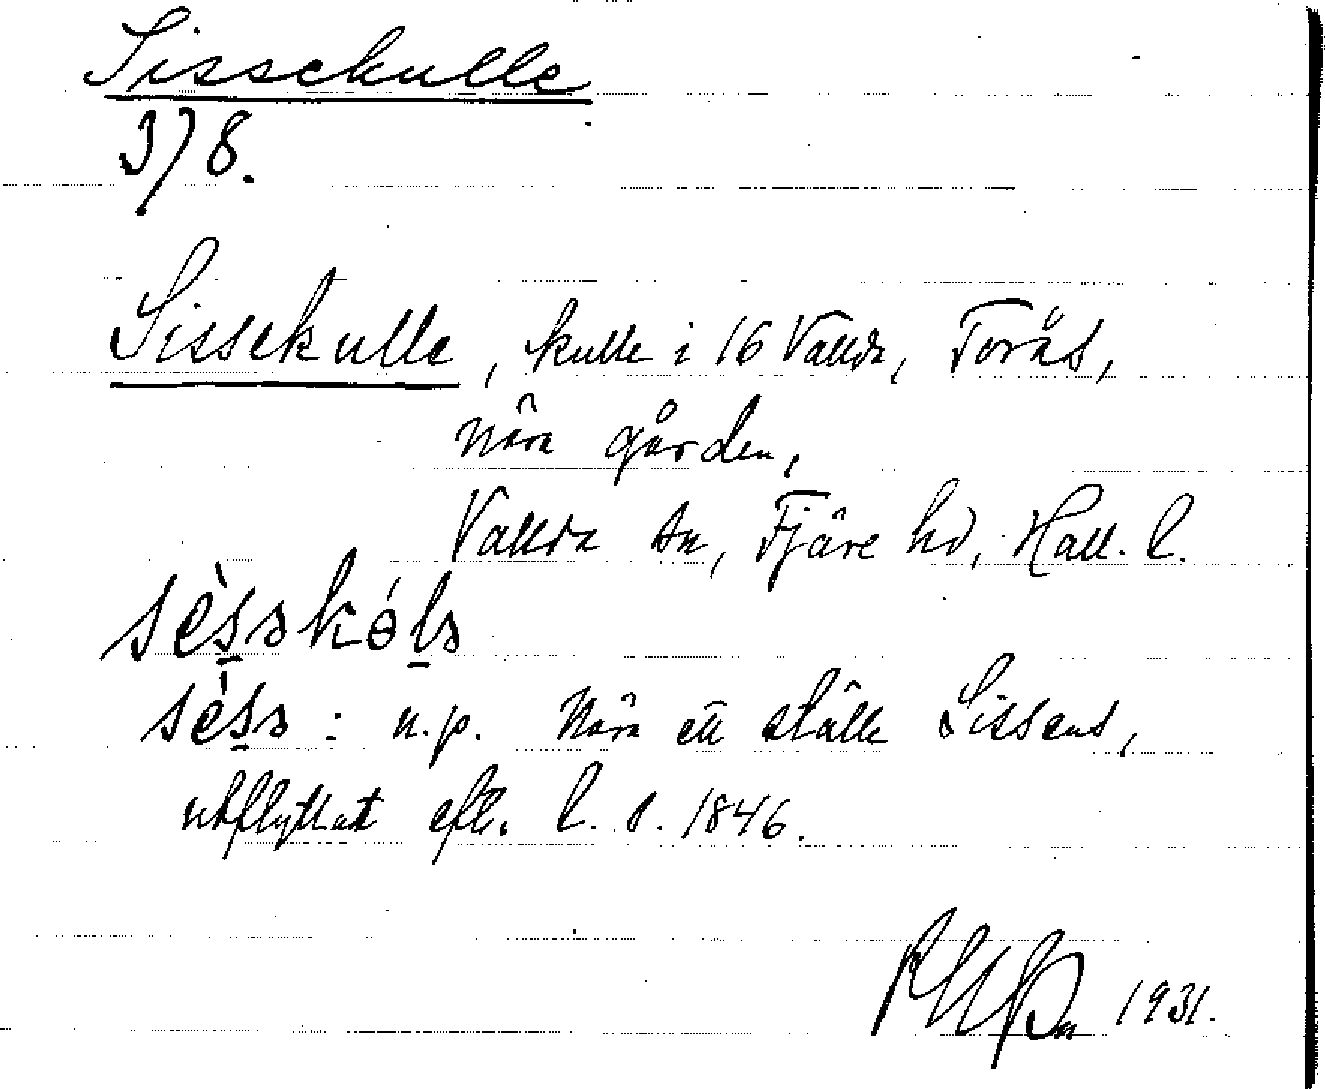 Sissekulle
3/8.
Sissekulle, kulle i 16 Vallda, Torås,
nära gården,
Vallda sn, Fjäre hd, Hall. l.
sèsskóls
sèss : n.p. Nära ett ställe Sissens,
utflyttat eft. l. s. 1846.
1931.